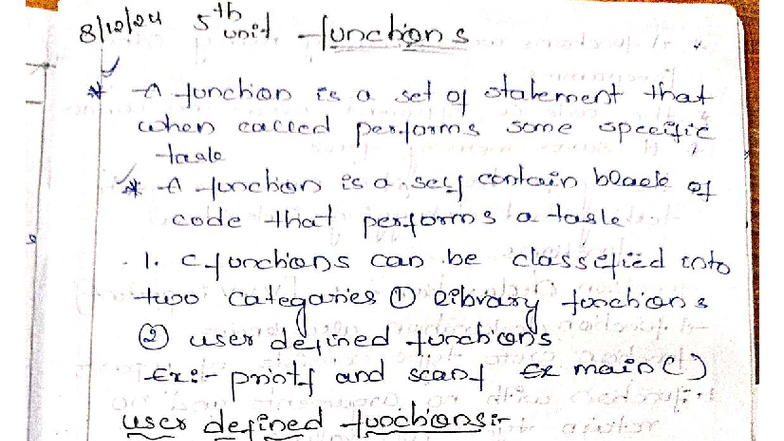 8/12/24 5th unit functions
* A function is a set of statement that
when called performs some specific
task
* A function is a self contain block of
code that performs a task
1. C functions can be classified into
two categaries ① library functions
② user defined functions
Ex:- printf and scanf Ex main()
user defined functions:-